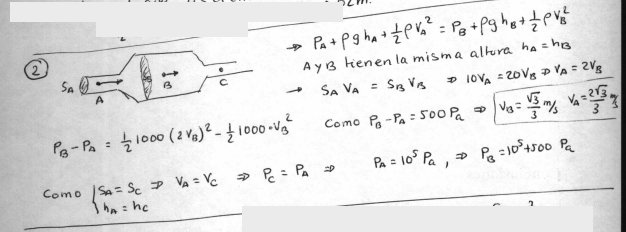 → PA + ρghA + 1/2 ρVA² = PB + ρghB + 1/2 ρVB²
A y B tienen la misma altura hA = hB
② SA A B C
→ SA VA = SB VB ⇒ 10VA = 20VB ⇒ VA = 2VB
PB - PA = 1/2 1000 (2VB)² - 1/2 1000·VB² Como PB - PA = 500 Pa ⇒ VB = √3/3 m/s VA = 2√3/3 m/s
Como SA = SC ⇒ VA = VC ⇒ PC = PA ⇒ PA = 10⁵ Pa, ⇒ PB = 10⁵ + 500 Pa
hA = hC